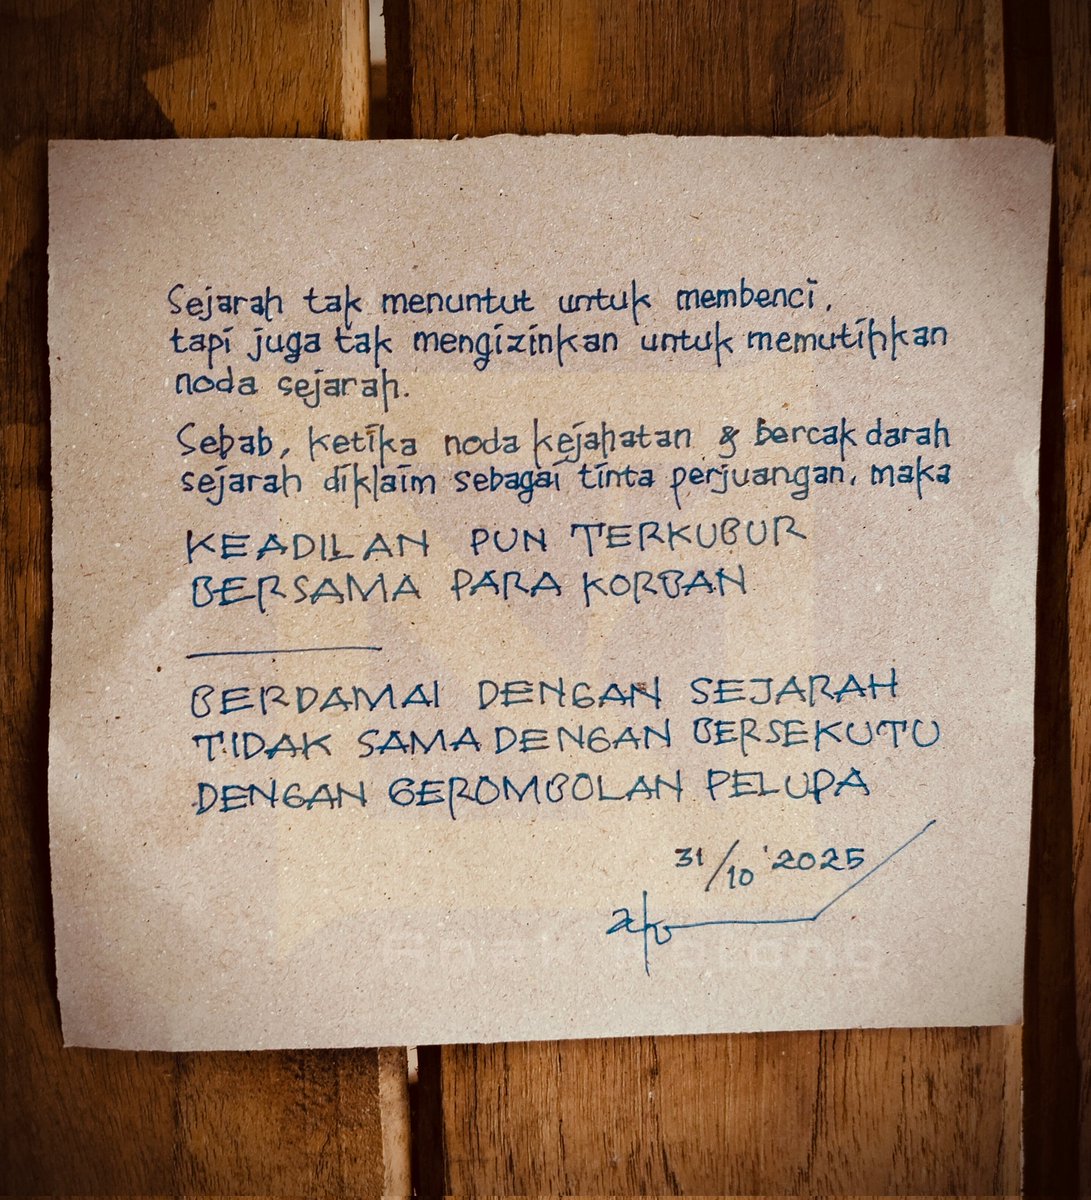 Sejarah tak menuntut untuk membenci,
tapi juga tak mengizinkan untuk memutihkan
noda sejarah.
Sebab, ketika noda kejahatan & bercak darah
sejarah diklaim sebagai tinta perjuangan, maka
KEADILAN PUN TERKUBUR
BERSAMA PARA KORBAN
BERDAMAI DENGAN SEJARAH
TIDAK SAMA DENGAN BERSEKUTU
DENGAN GEROMBOLAN PELUPA
31/10 '2025